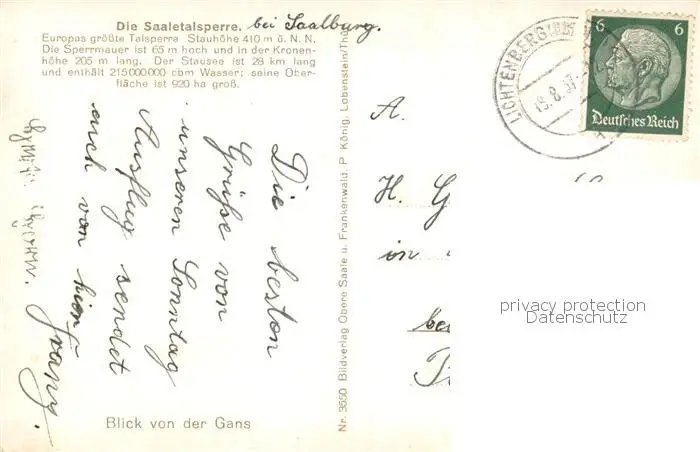 Die Saaletalsperre. bei Saalburg.
Europas größte Talsperre Stauhöhe 410 m ü. N. N.
Die Sperrmauer ist 65 m hoch und in der Kronen-
höhe 205 m lang. Der Stausee ist 28 km lang
und enthält 215000000 cbm Wasser; seine Ober-
fläche ist 920 ha groß.
Die besten
Grüße von
unseren Sonntag
Ausflug sendet
auch von hier
Franz.
Blick von der Gans
Nr. 3550 Bildverlag Obere Saale u. Frankenwald. P. König, Lobenstein/Thür
LICHTENBERG
6 6
Deutsches Reich
A.
H. G
in
privacy protection
Datenschutz